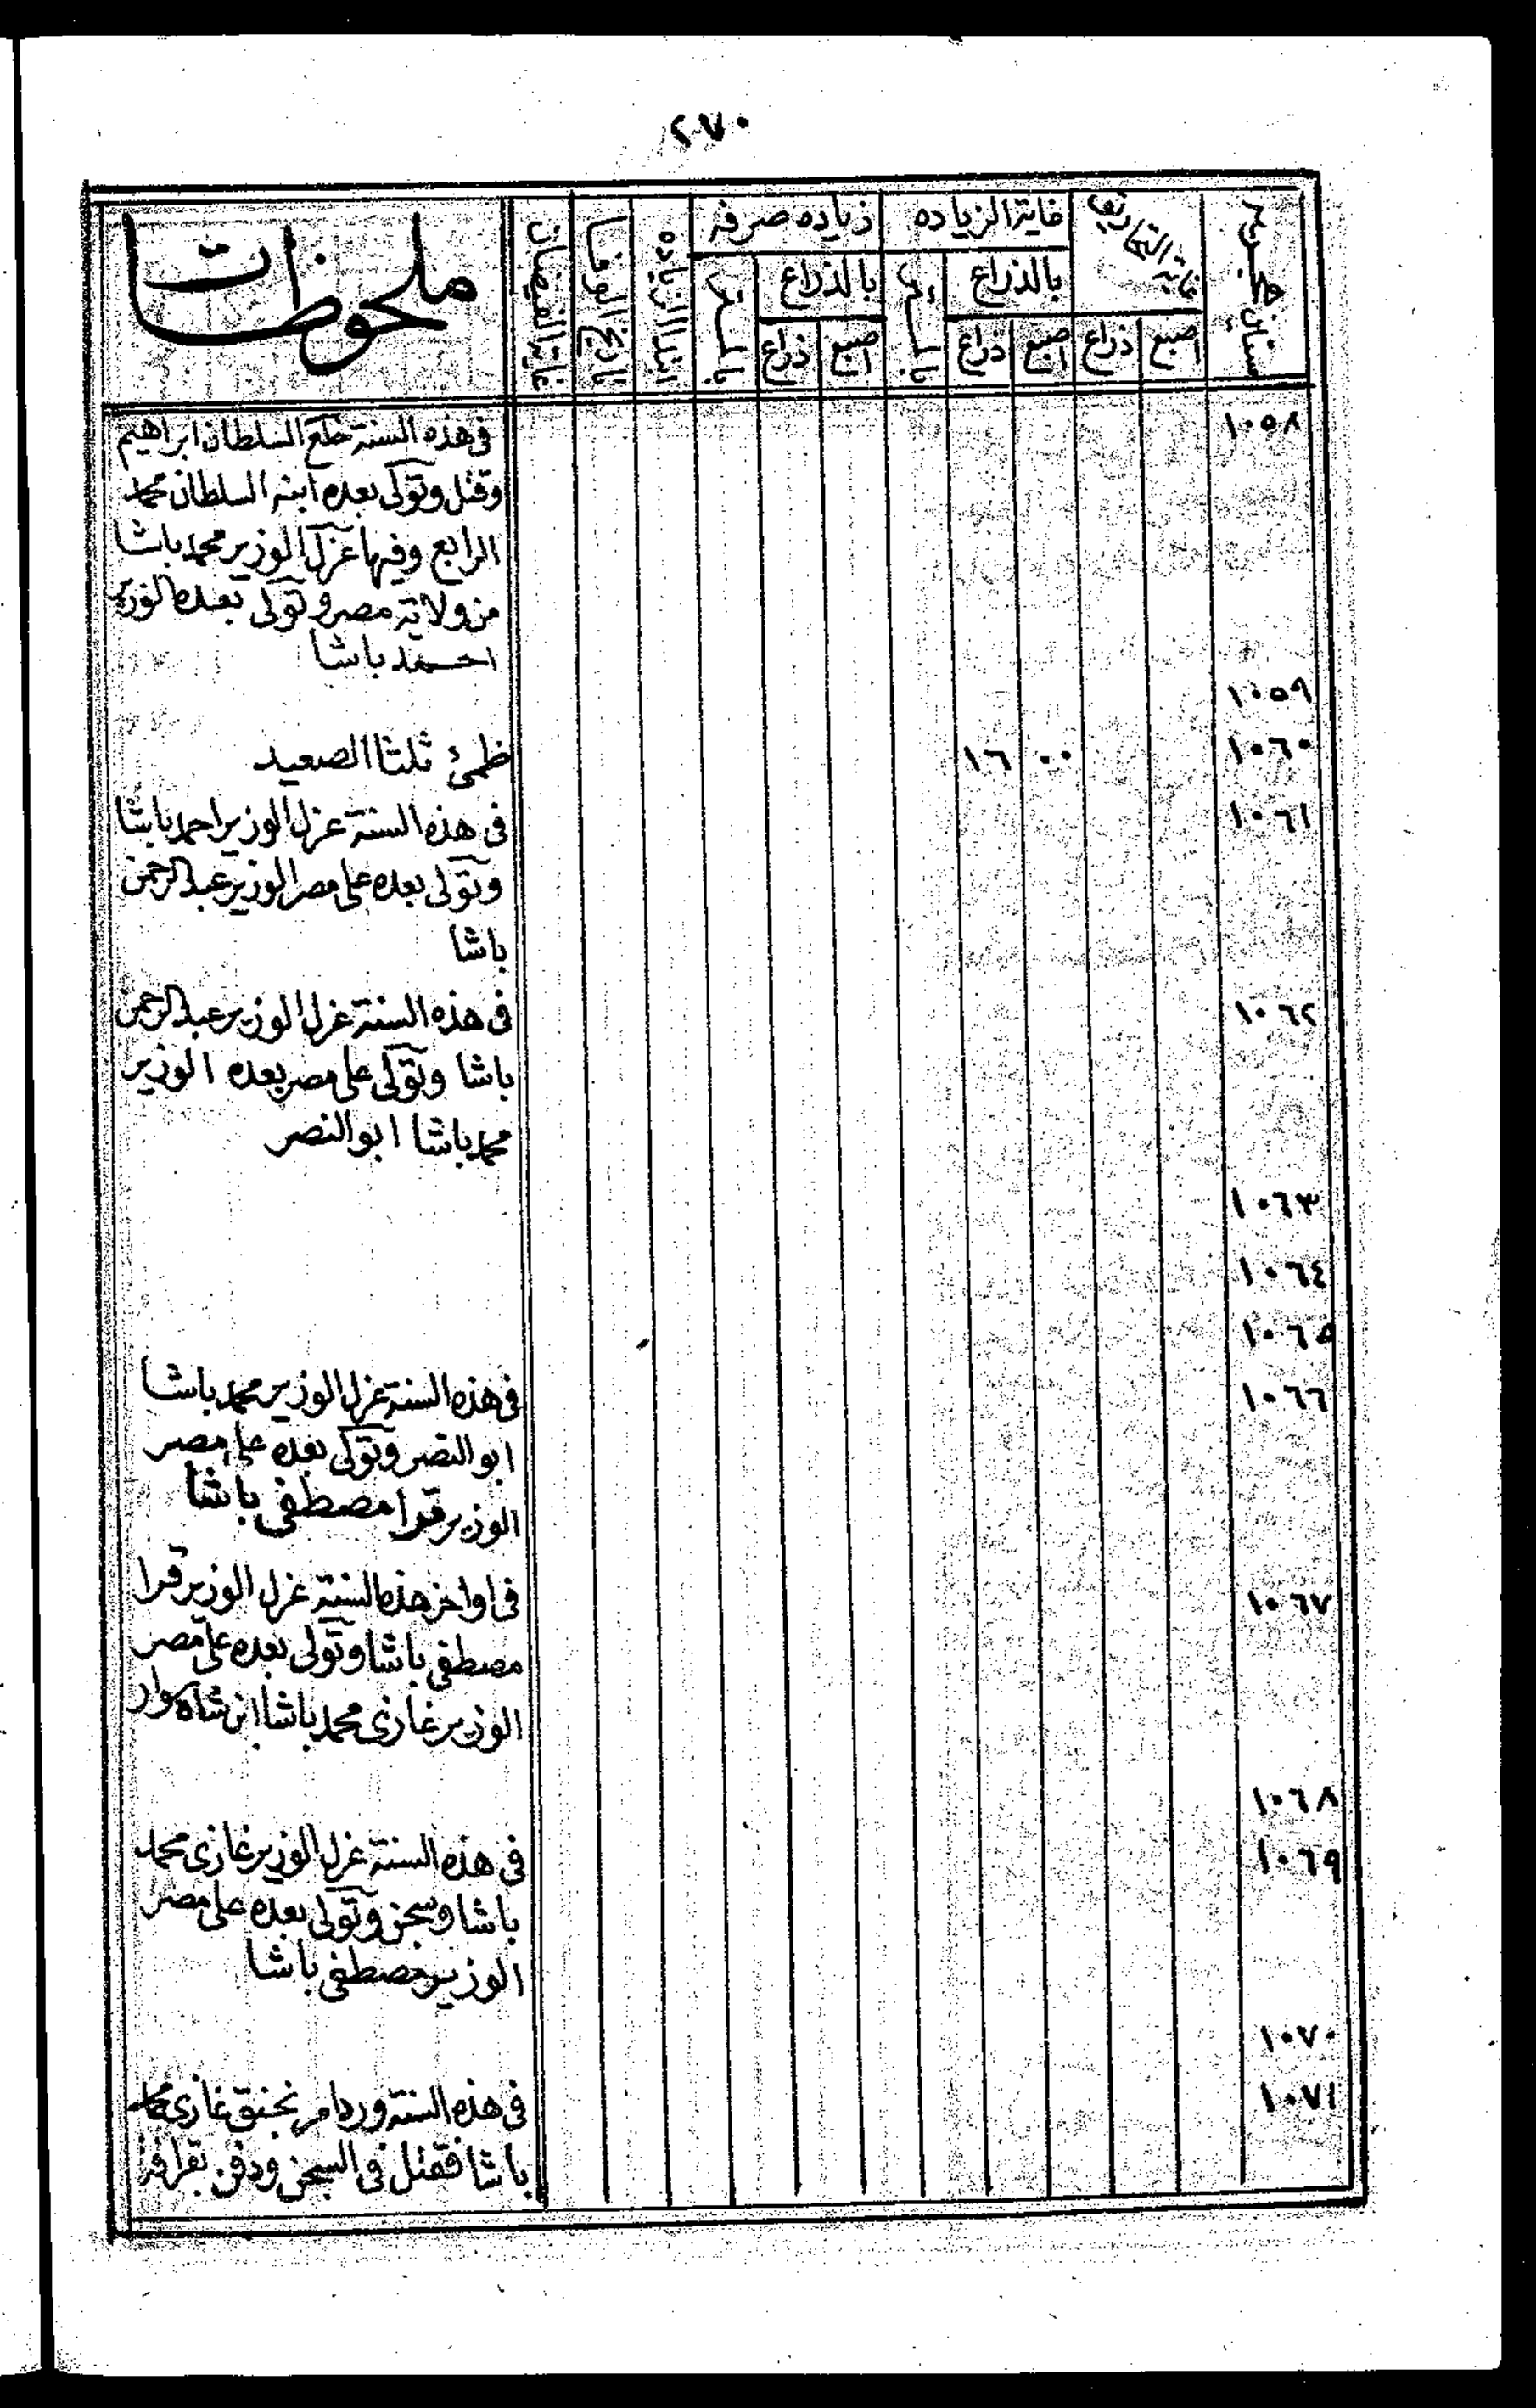 ٢٧٠
سنين هجرية
غاية التحاريق
غاية الزياده
زياده صرفه
ابتدا الزياده
تاريخ الوفا
غاية الفيضان
ملحوظات
بالذراع
بالذراع
اصبع
ذراع
اصبع
ذراع
اصبع
ذراع
١٠٥٨
فى هذه السنة خلع السلطان ابراهيم
وقتل وتولى بعده ابنه السلطان محمد
الرابع وفيها عزل الوزير محمد باشا
من ولاية مصر وتولى بعده الوزير
احمد باشا
١٠٥٩
١٠٦٠
٠٠
١٦
ظمئ ثلثا الصعيد
١٠٦١
فى هذه السنة عزل الوزير احمد باشا
وتولى بعده على مصر الوزير عبد الرحمن
باشا
١٠٦٢
فى هذه السنة عزل الوزير عبد الرحمن
باشا وتولى على مصر بعده الوزير
محمد باشا ابو النصر
١٠٦٣
١٠٦٤
١٠٦٥
١٠٦٦
فى هذه السنة عزل الوزير محمد باشا
ابو النصر وتولى بعده على مصر
الوزير قرا مصطفى باشا
١٠٦٧
فى اواخر هذه السنة عزل الوزير قرا
مصطفى باشا وتولى بعده على مصر
الوزير غازى محمد باشا ابن شاه سوار
١٠٦٨
١٠٦٩
فى هذه السنة عزل الوزير غازى محمد
باشا وسجن وتولى بعده على مصر
الوزير مصطفى باشا
١٠٧٠
١٠٧١
فى هذه السنة ورد امر بخنق غازى محمد
باشا فقتل فى السجن ودفن بقرافة